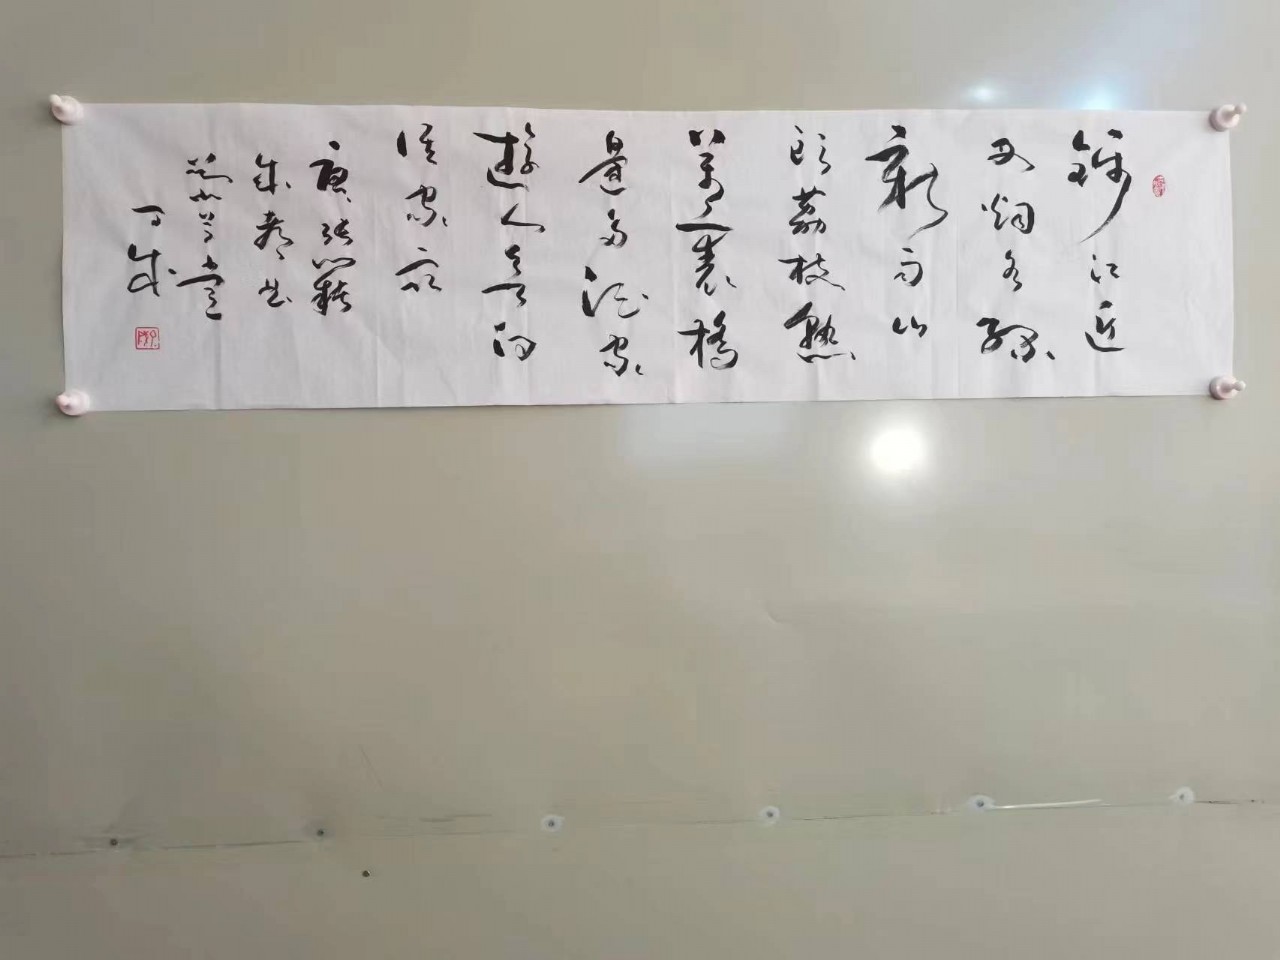 錦江近
西烟水綠
新雨山
頭荔枝熟
萬裏橋
邊多酒家
遊人愛向
誰家宿
唐張籍
成都曲